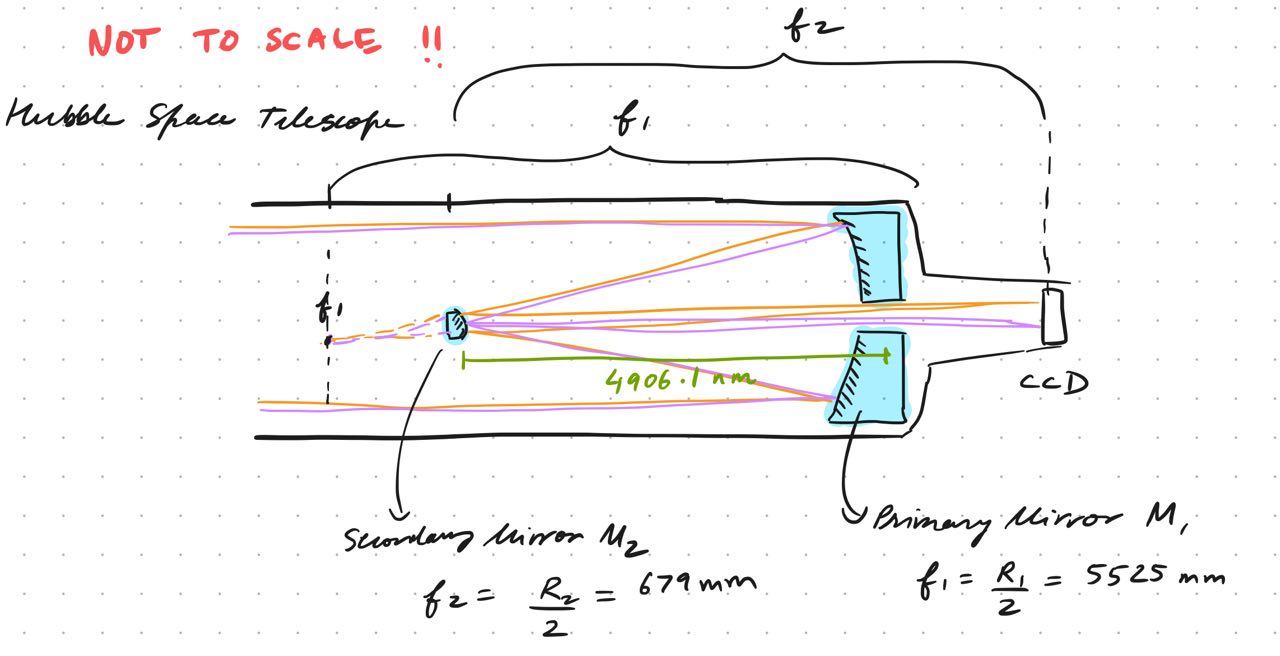 NOT TO SCALE !!
f2
Hubble Space Telescope
f1
f1
4906.1 mm
CCD
Secondary Mirror M2
f2 = R2/2 = 679 mm
Primary Mirror M1
f1 = R1/2 = 5525 mm